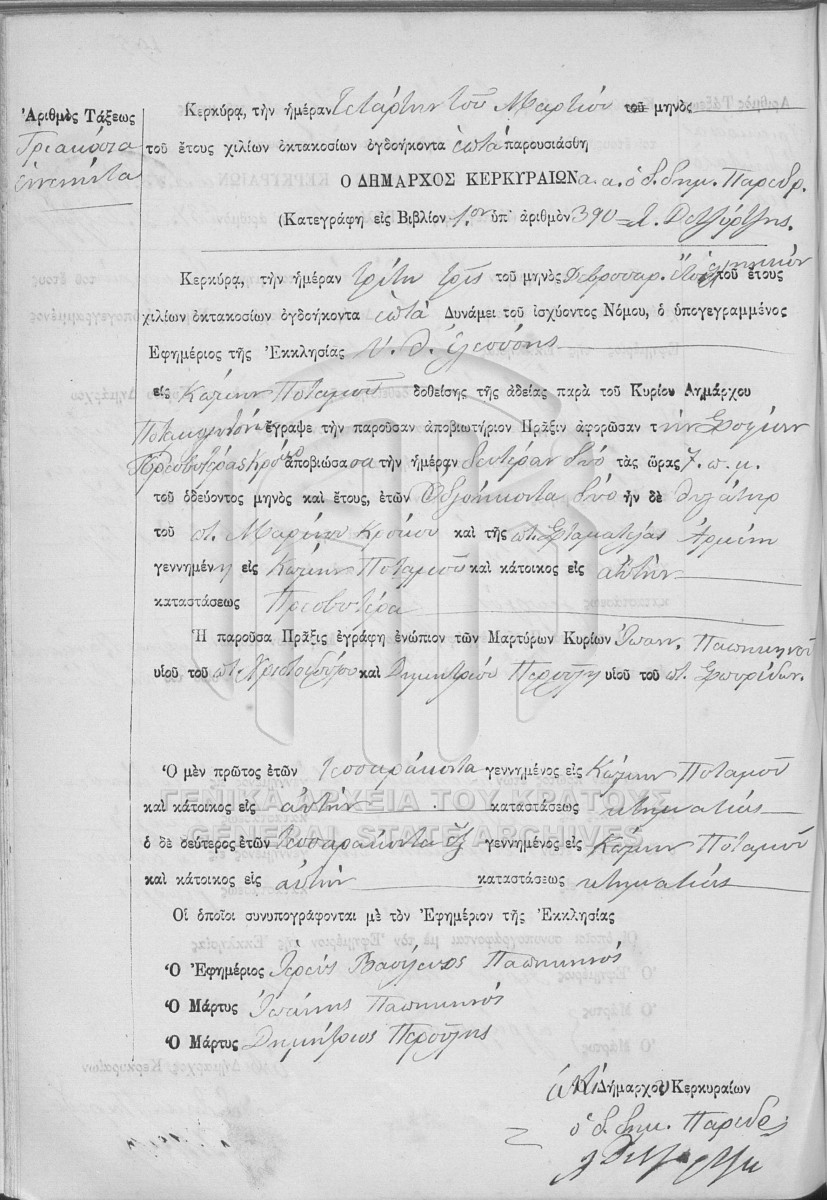 Ἀριθμὸς Τάξεως
Τριακόσια
ἐννενήντα
Κερκύρα, τὴν ἡμέραν τετάρτην τοῦ Μαρτίου τοῦ μηνὸς
τοῦ ἔτους χιλίων ὀκτακοσίων ὀγδοήκοντα ἑπτά παρουσιάσθη
Ο ΔΗΜΑΡΧΟΣ ΚΕΡΚΥΡΑΙΩΝ α. α. ὁ δ. δημ. Παρεδρ.
(Κατεγράφη εἰς Βιβλίον 1ον ὑπ' ἀριθμὸν 390
Κερκύρα, τὴν ἡμέραν τρίτη τρῖς τοῦ μηνὸς Φεβρουαρ. τοῦ ἔτους
χιλίων ὀκτακοσίων ὀγδοήκοντα ἑπτά Δυνάμει τοῦ ἰσχύοντος Νόμου, ὁ ὑπογεγραμμένος
Ἐφημέριος τῆς Ἐκκλησίας Υ. Θ. Ἐλεούσης
εἰς Κώμην Ποταμοῦ δοθείσης τῆς ἀδείας παρὰ τοῦ Κυρίου Δημάρχου
ἔγραψε τὴν παροῦσαν ἀποβιωτήριον Πρᾶξιν ἀφορῶσαν τὴν
Πρεσβυτέρας ἀποβιώσασα τὴν ἡμέραν δευτέραν δύο τὰς ὥρας 7. π. μ.
τοῦ ὁδεύοντος μηνὸς καὶ ἔτους, ἐτῶν Ὀγδοήκοντα δύο ἦν δὲ θυγάτηρ
τοῦ ποτ. Μαρίνου Κρόκου καὶ τῆς ποτ. Σταματέλας Ἀρμένη
γεννημένη εἰς Κώμην Ποταμοῦ καὶ κάτοικος εἰς αὐτήν
καταστάσεως Πρεσβυτέρα
Ἡ παροῦσα Πρᾶξις ἐγράφη ἐνώπιον τῶν Μαρτύρων Κυρίων Ἰωάν. Παπικινοῦ
υἱοῦ τοῦ ποτ. Χριστοδούλου καὶ Δημητρίου Περούλη υἱοῦ τοῦ ποτ. Σπυρίδων.
Ὁ μὲν πρῶτος ἐτῶν τεσσαράκοντα γεννημένος εἰς Κώμην Ποταμοῦ
καὶ κάτοικος εἰς αὐτήν καταστάσεως κτηματίας
ὁ δὲ δεύτερος ἐτῶν τεσσαράκοντα ἕξ γεννημένος εἰς Κώμην Ποταμοῦ
καὶ κάτοικος εἰς αὐτήν καταστάσεως κτηματίας
Οἱ ὁποῖοι συνυπογράφονται μὲ τὸν Ἐφημέριον τῆς Ἐκκλησίας
Ὁ Ἐφημέριος Ἱερεύς Βασίλειος Παπικινός
Ὁ Μάρτυς Ἰωάννης Παπικινός
Ὁ Μάρτυς Δημήτριος Περούλης
Ὁ Δήμαρχος Κερκυραίων
ὁ δ. δημ. Παρεδρ.
ΓΕΝΙΚΑ ΑΡΧΕΙΑ ΤΟΥ ΚΡΑΤΟΥΣ
GENERAL STATE ARCHIVES